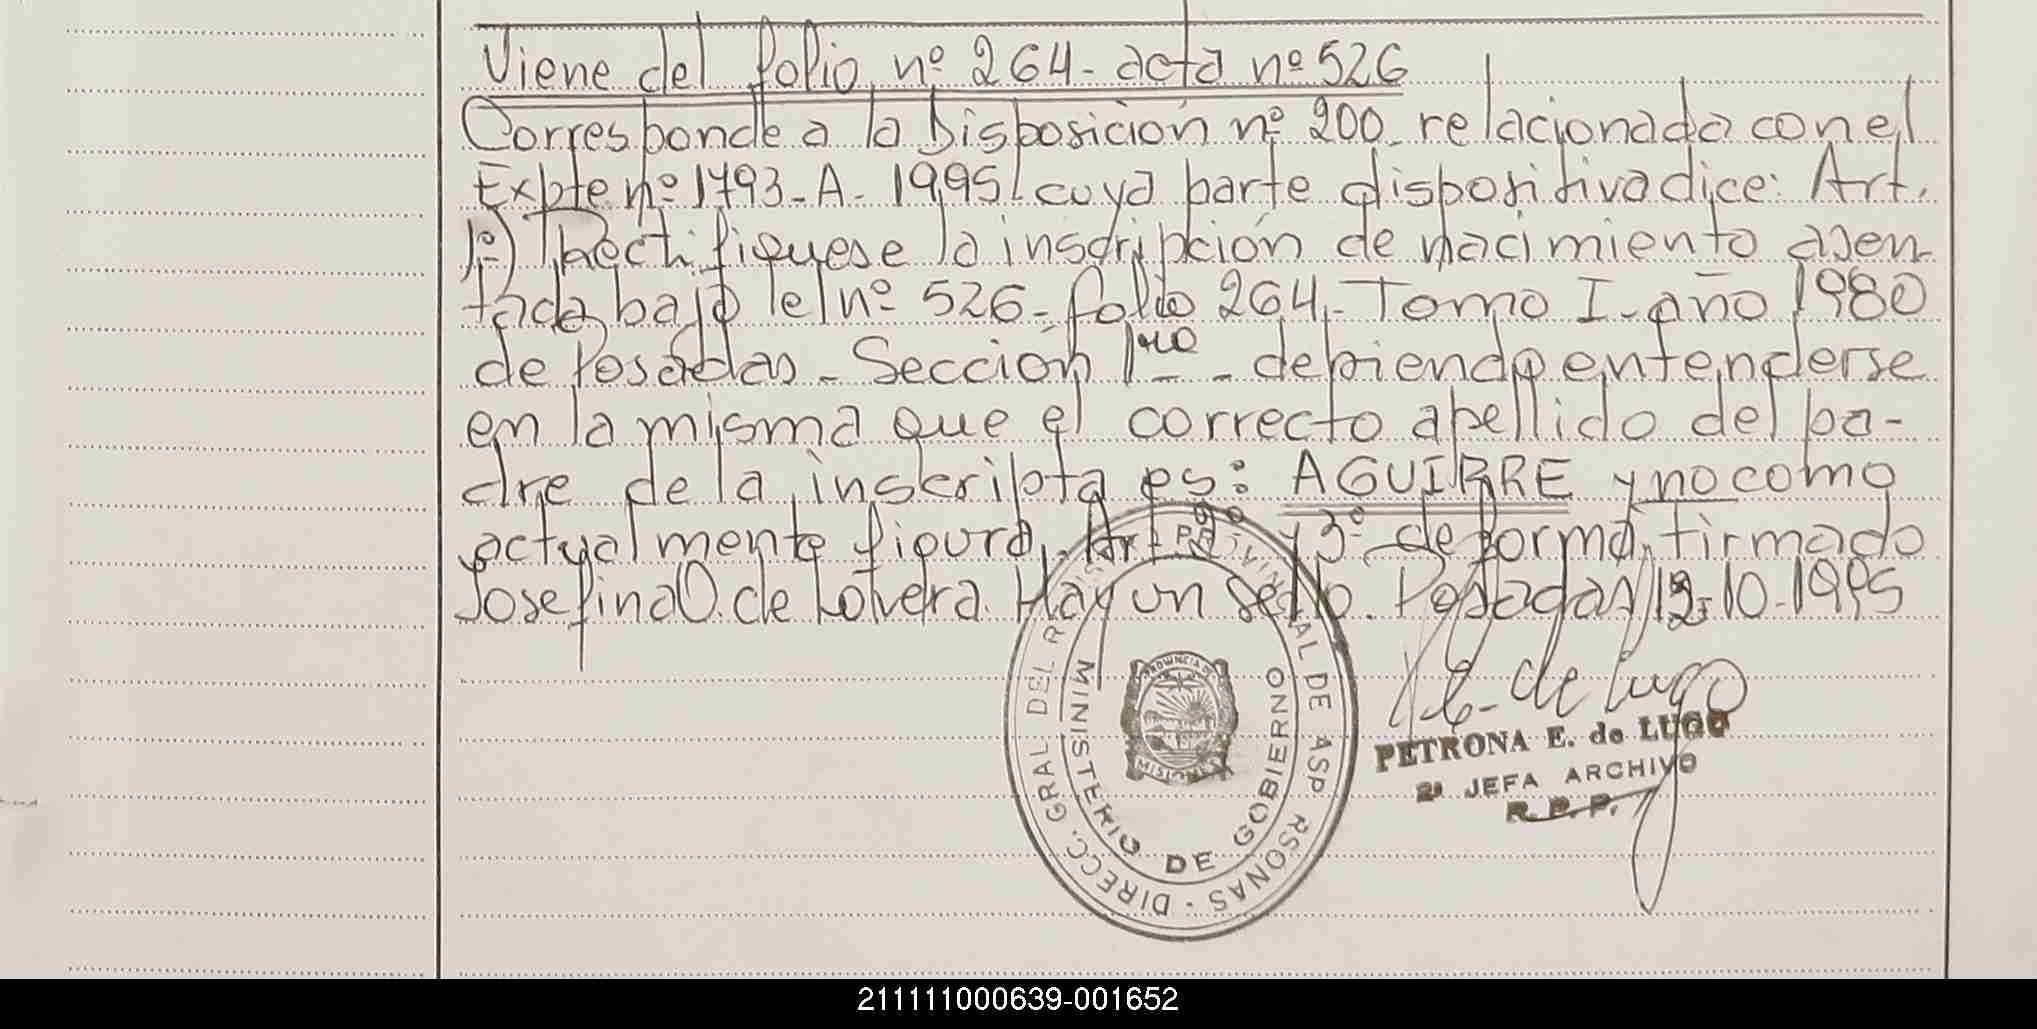 Viene del folio nº 264 - acta nº 526
Corresponde a la Disposición nº 200 - relacionada con el
Expte nº 1793 - A - 1995 - cuya parte dispositiva dice: Art.
1º) Rectifiquese la inscripción de nacimiento asen-
tada bajo le nº 526 - folio 264 - Tomo I - año 1980
de Posadas - Sección 1ra - debiendo entenderse
en la misma que el correcto apellido del pa-
dre de la inscripta es: AGUIRRE y no como
actualmente figura. Art 2º y 3º de forma, firmado
Josefina O. de Lovera. Hay un sello. Posadas, 12-10-1995
P. E. de Lugo
PETRONA E. de LUGO
2ª JEFA ARCHIVO
R. P. P.
DIRECC. GRAL DEL REGISTRO PROVINCIAL DE LAS PERSONAS
MINISTERIO DE GOBIERNO
PROVINCIA DE
MISIONES
211111000639-001652